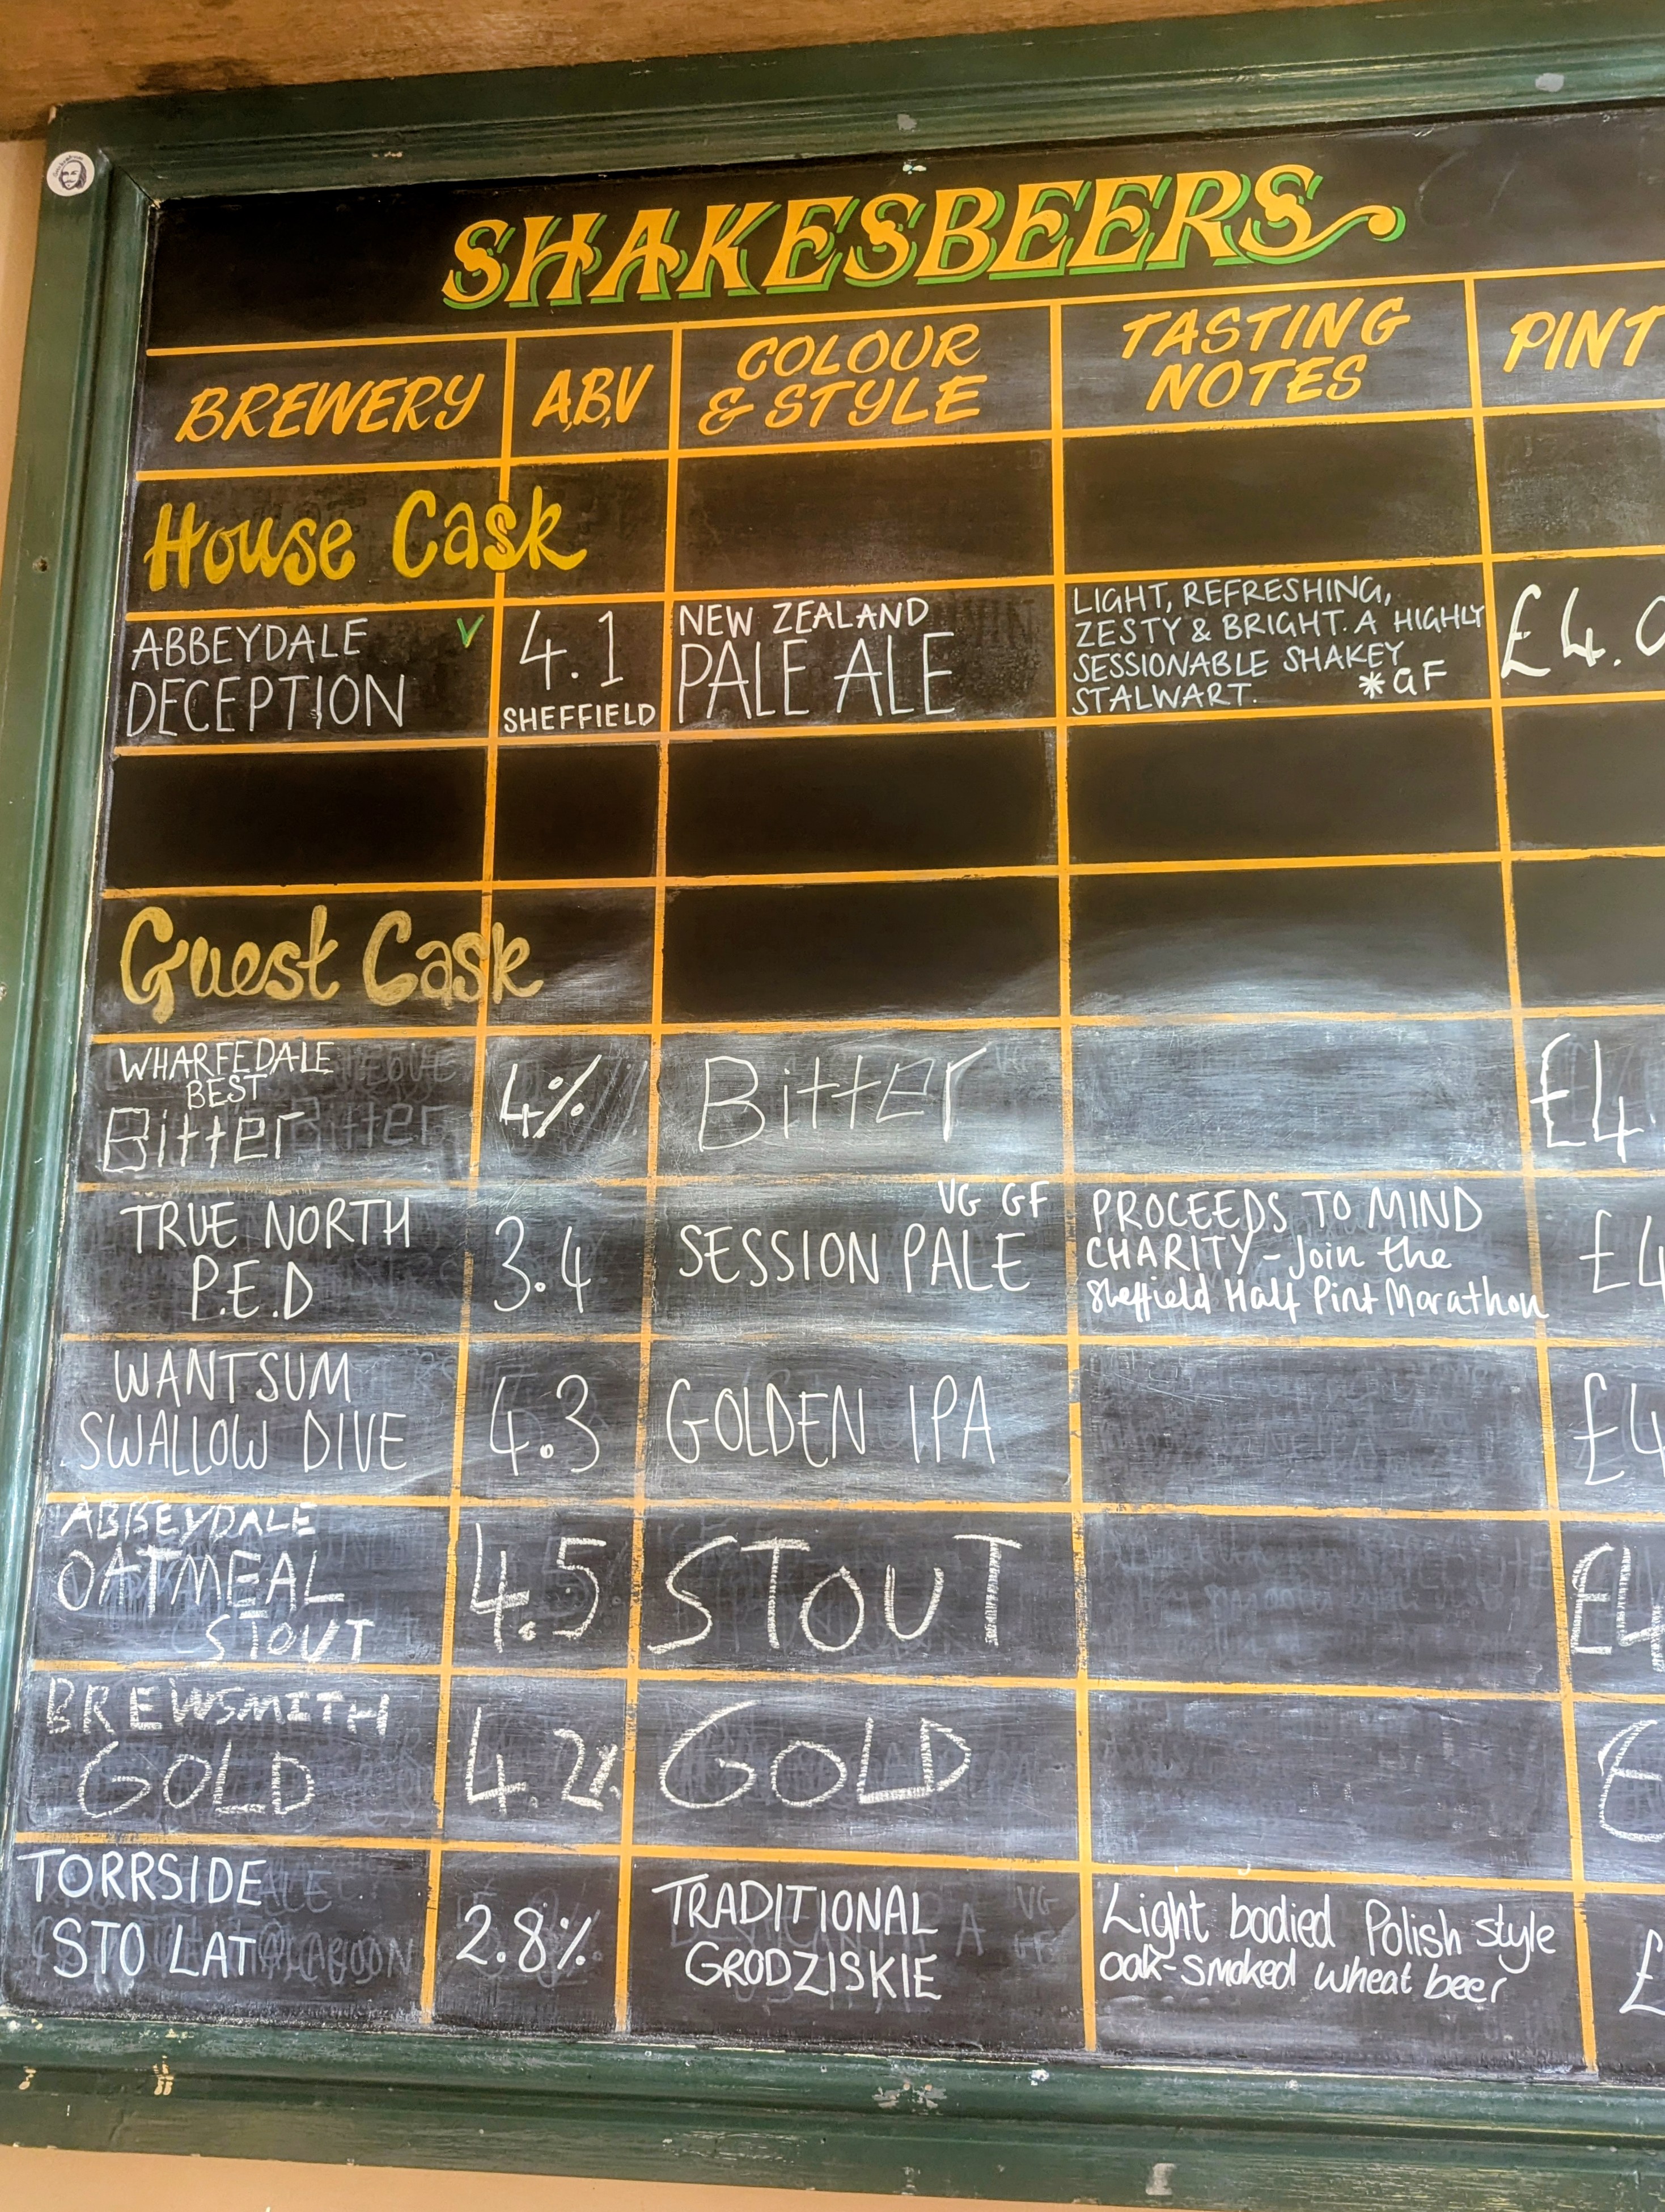 SHAKESBEERS
BREWERY
A,B,V
COLOUR
& STYLE
TASTING
NOTES
PINT
House Cask
ABBEYDALE V
DECEPTION
4.1
SHEFFIELD
NEW ZEALAND
PALE ALE
LIGHT, REFRESHING,
ZESTY & BRIGHT. A HIGHLY
SESSIONABLE SHAKEY
STALWART. *GF
£4.0
Guest Cask
WHARFEDALE
BEST
Bitter
4%
Bitter
£4
TRUE NORTH
P.E.D
3.4
VG GF
SESSION PALE
PROCEEDS TO MIND
CHARITY - Join the
Sheffield Half Pint Marathon
£4
WANTSUM
SWALLOW DIVE
4.3
GOLDEN IPA
£4
ABBEYDALE
OATMEAL
STOUT
4.5
STOUT
£4
BREWSMITH
GOLD
4.2%
GOLD
£
TORRSIDE
STO LAT
2.8%
TRADITIONAL
GRODZISKIE
Light bodied Polish style
oak-smoked wheat beer
£